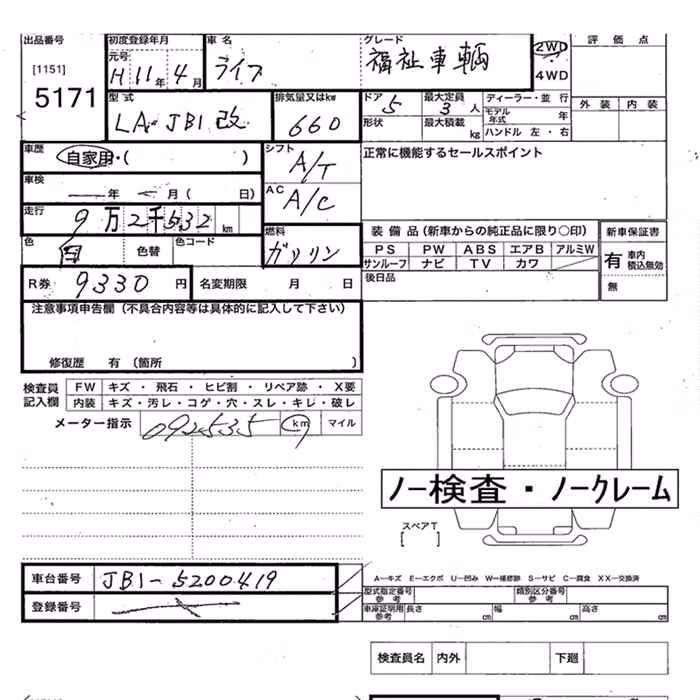 出品番号 初度登録年月 車名 グレード 評価点
[1151] 元号 H11年4月 ライフ 福祉車輌 2WD
5171 4WD
型式 排気量又はkw ドア 最大定員 ディーラー・並行 外装 内装
LA-JB1改 660 5 3人 モデル年式 年
形状 最大積載 kg ハンドル 左・右
車歴 自家用・( ) シフト A/T 正常に機能するセールスポイント
車検 年 月( 日) AC A/C
走行 9万2千532km 燃料 装備品(新車からの純正品に限り○印) 新車保証書
色 白 色替 色コード ガソリン PS PW ABS エアB アルミW 有 車内積込無効
サンルーフ ナビ TV カワ
R券 9330円 名変期限 月 日 後日品 無
注意事項申告欄(不具合内容等は具体的に記入して下さい)
修復歴 有(箇所 )
検査員 FW キズ・飛石・ヒビ割・リペア跡・X要
記入欄 内装 キズ・汚レ・コゲ・穴・スレ・キレ・破レ
メーター指示 092535 km マイル
ノー検査・ノークレーム
スペアT
[ ]
車台番号 JB1-5200419 A−キズ E−エクボ U−凹み W−補修跡 S−サビ C−腐食 XX−交換済
登録番号 型式指定番号 参考 類別区分番号 参考
車庫証明用 参考 長さ cm 幅 cm 高さ cm
検査員名 内外 下廻